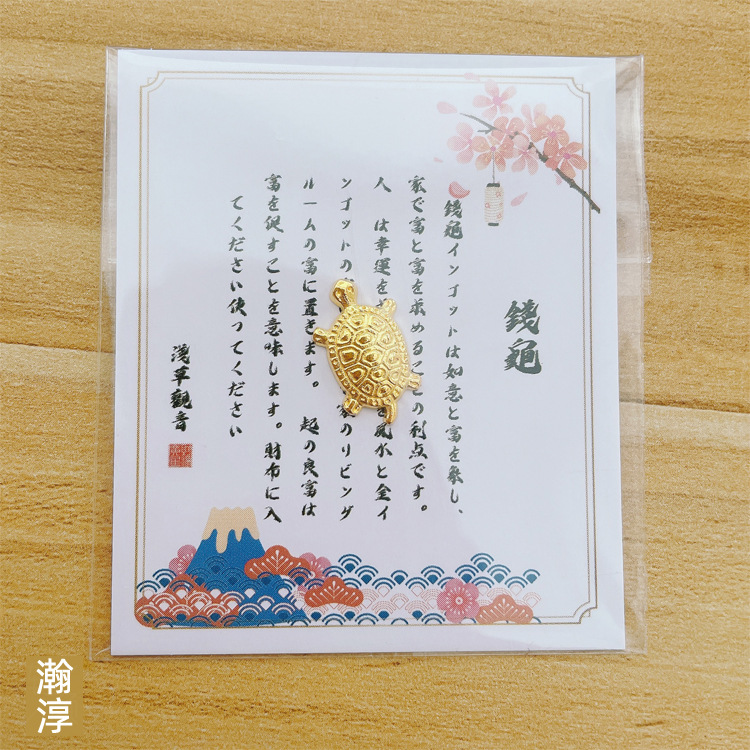 錢龜
錢龜インゴットは如意と富を象し、
家で富と富を求めることの利点です。
人 は幸運を 風水と金イ
ンゴットの 家のリビング
ルームの富に置きます。 起の良富は
富を促すことを意味します。財布に入
てください使ってください
淺草觀音
瀚淳